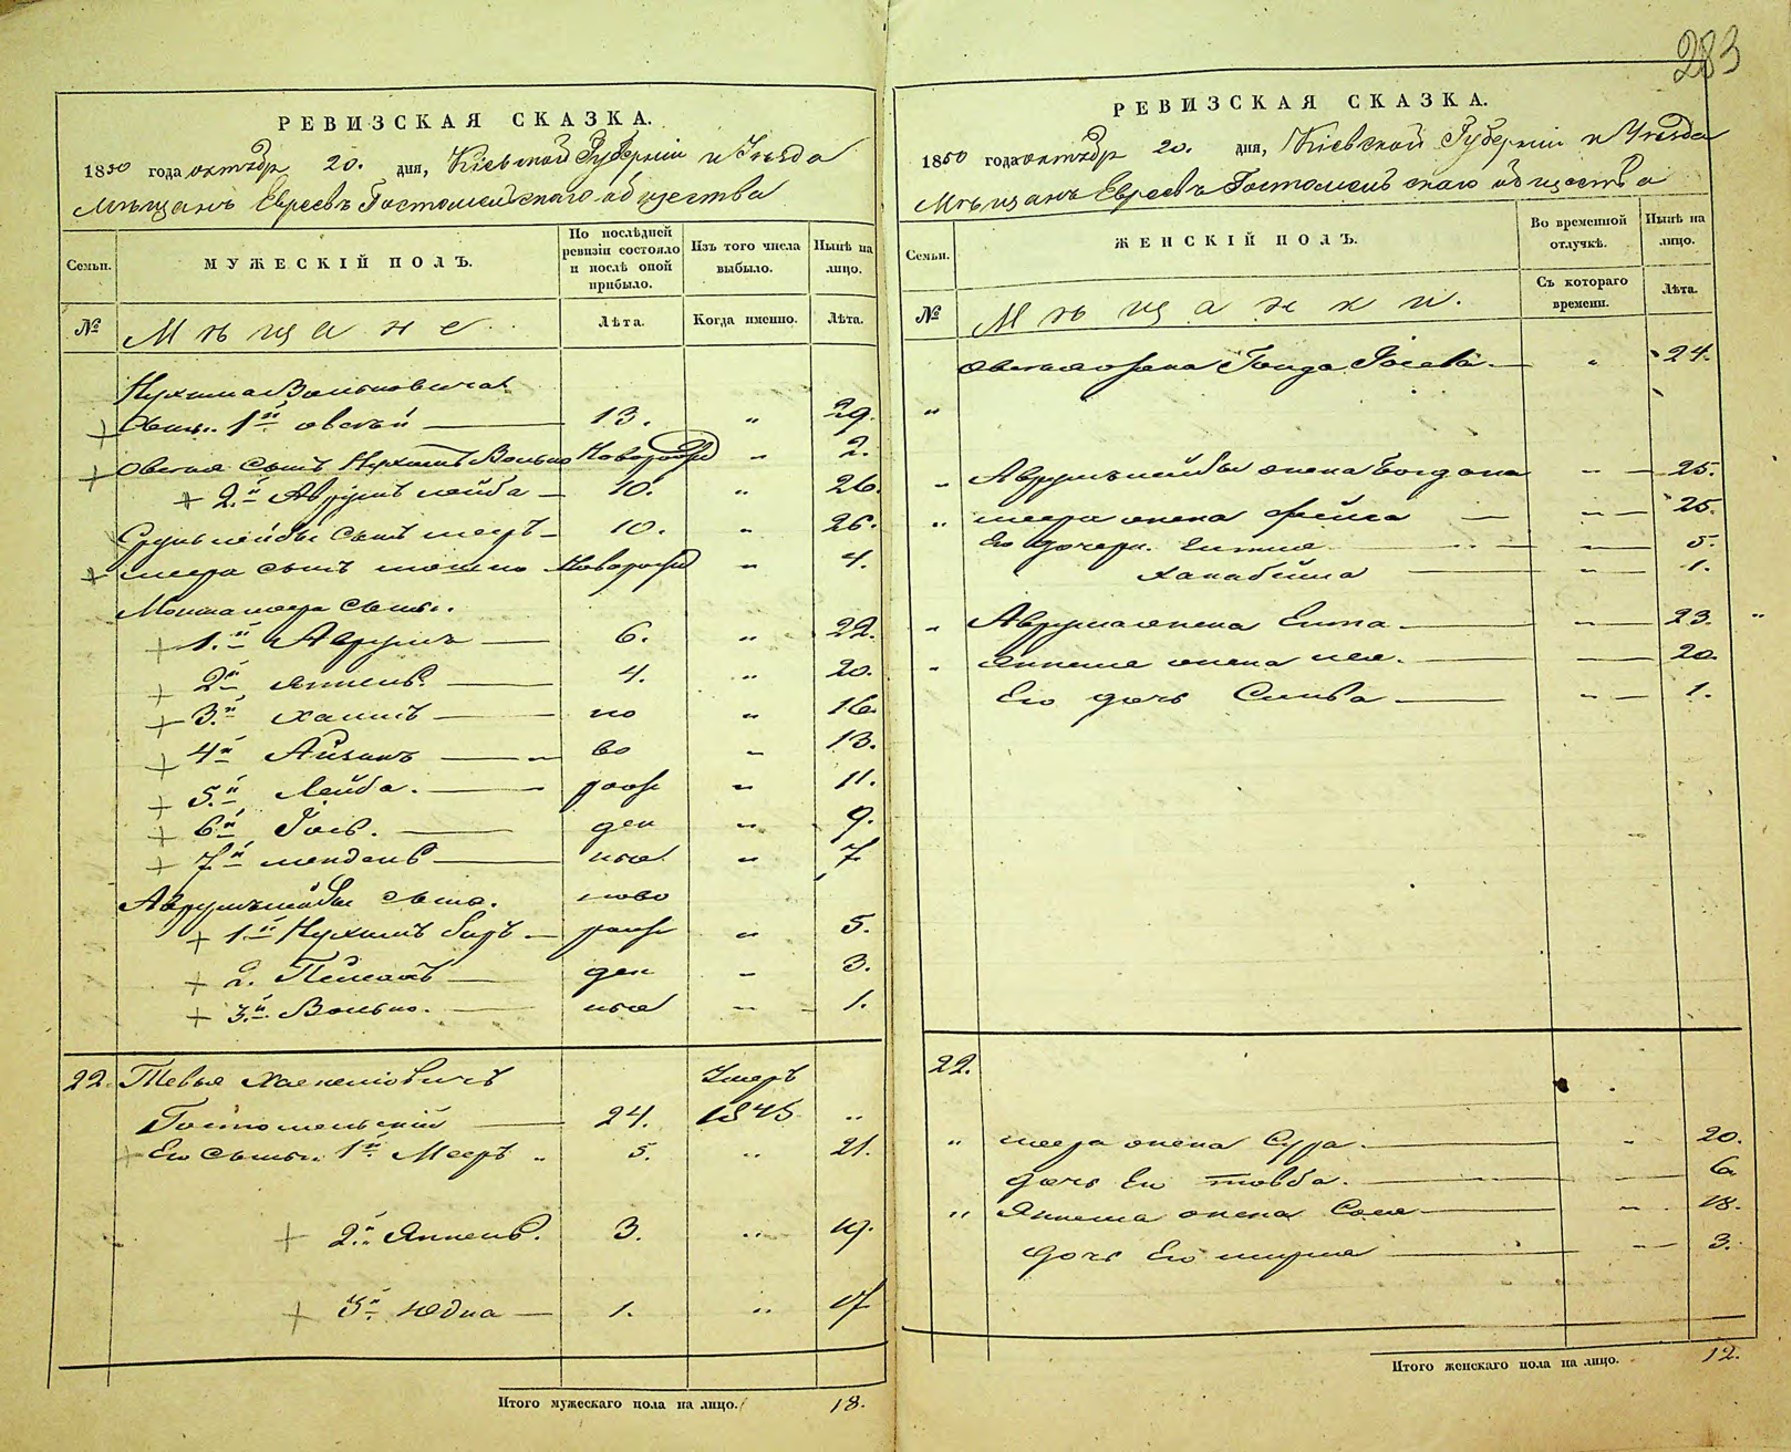 283
РЕВИЗСКАЯ СКАЗКА.
1850 года октябр 20. дня, Кіевской Губерніи и Уѣзда
Мѣщанъ Евреевъ Гостомельскаго общества
Семьи.
МУЖЕСКІЙ ПОЛЪ.
По послѣдней ревизіи состояло и послѣ оной прибыло.
Изъ того числа выбыло.
Нынѣ на лицо.
№
Мѣщане
Лѣта.
Когда именно.
Лѣта.
Нухима Вольковича
Сыны 1й Овсѣй 13. " 29.
Овсея сынъ Нухимъ Волько Новорожд " 2.
2й Аврумъ лейба 10. " 26.
Срульлейбы сынъ мееръ 10. " 26.
меера сынъ Новорожд " 4.
Мошкамеера сыны.
1й Аврумъ 6. " 22.
2й Янкель 4. " 20.
3й хаимъ но " 16.
4й Айзикъ во " 13.
5й Лейба. рож " 11.
6й Іось. ден " 9.
7й мендель ные " 7
Аврумълейбы сыны. ново
1й Нухимъ беръ рож " 5.
2. Пейсахъ ден " 3.
3й Волько. ные " 1.
22. Тевье Умеръ
Гостомельскій 24. 1845 "
Его сыны 1й Мееръ 5. " 21.
2й Янкель. 3. " 19.
3й Юдка 1. " 17
Итого мужескаго пола на лицо. 18.
РЕВИЗСКАЯ СКАЗКА.
1850 года октябр 20. дня, Кіевской Губерніи и Уѣзда
Мѣщанъ Евреевъ Гостомельскаго общества
Семьи.
ЖЕНСКІЙ ПОЛЪ.
Во временной отлучкѣ.
Нынѣ на лицо.
№
Мѣщанки.
Съ котораго времени.
Лѣта.
Овсея жена Іосева " 24.
" Аврумълейбы жена Богдана " 25.
" меера жена фейга " 25.
Его дочери. " 5.
Ханабейла " 1.
" Аврума жена Ента " 23.
" Янкеля жена лея. " 20.
Его дочь Слива " 1.
22.
" меера жена Сура. " 20.
дочь Его товба. 6
" Янкеля жена Сося " 18.
дочь Его " 3.
Итого женскаго пола на лицо. 12.